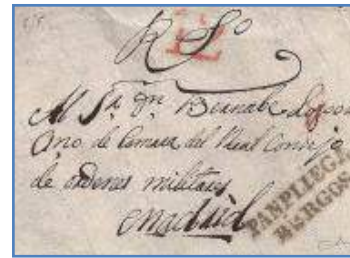 R S.º
Al S.r Dn. Bernabe
Srio. de Camara del Real Consejo
de ordenes militares
Madrid
PANPLIEGA
BURGOS